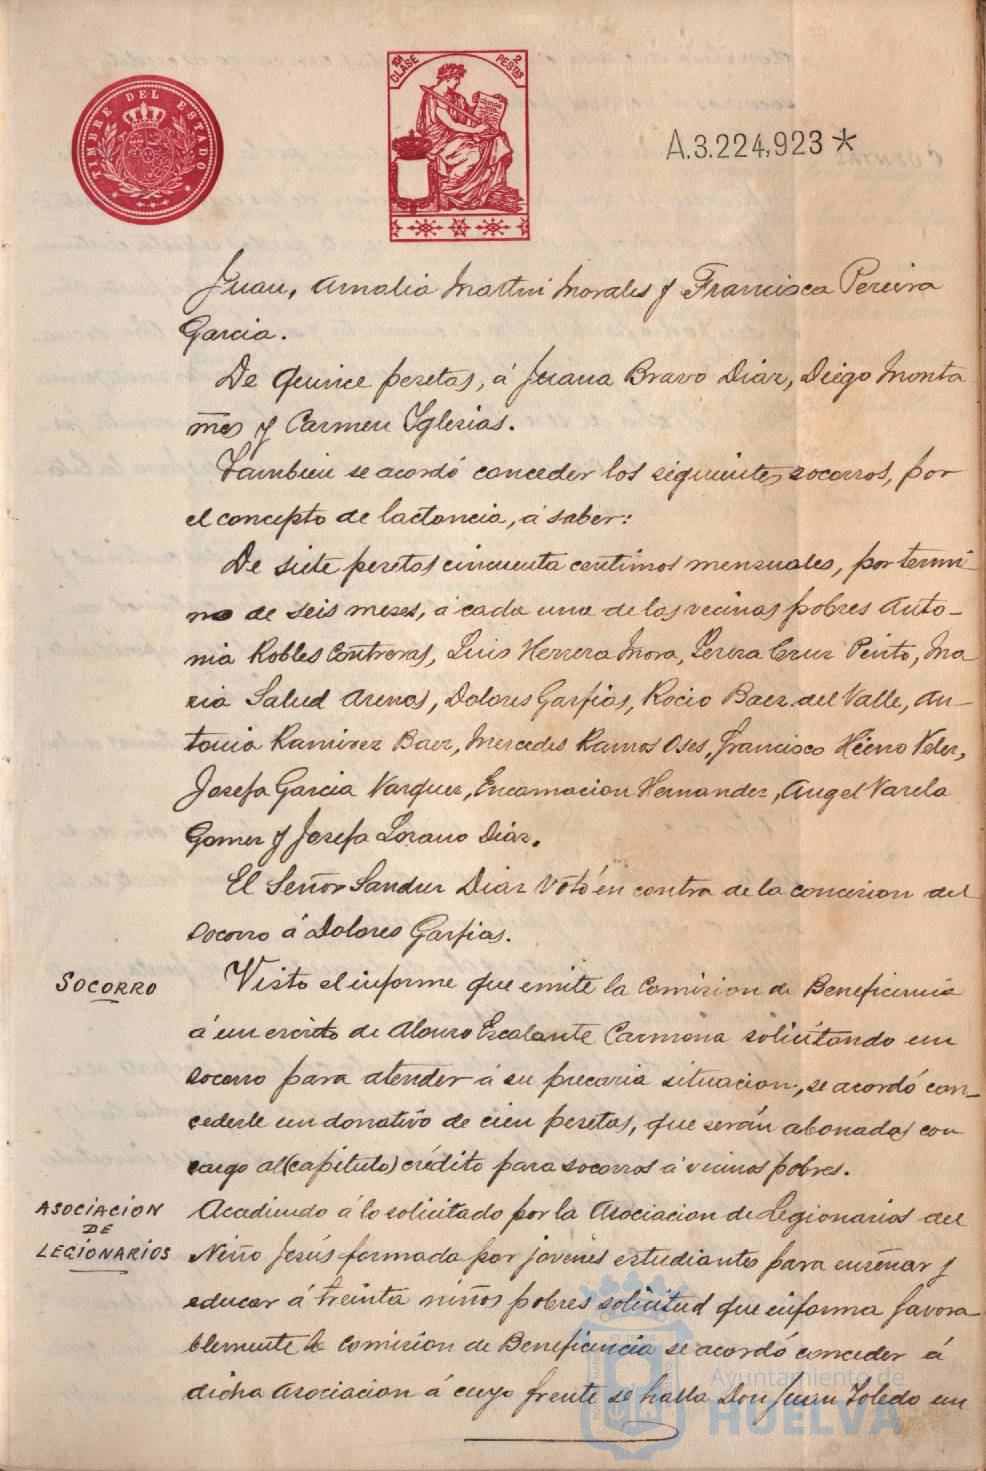 TIMBRE DEL ESTADO
10ª CLASE
2 PESTAS
A.3.224,923 *
Juan, Amalia Martin Morales y Francisca Pereira
Garcia.
De quince pesetas, á Juana Bravo Diaz, Diego Monta
ñes y Carmen Yglesias.
Tambien se acordó conceder los siguientes socorros, por
el concepto de lactancia, á saber:
De siete pesetas cincuenta centimos mensuales, por termi
no de seis meses, á cada una de las vecinas pobres Anto-
nia Robles Contreras, Luis Herrera Mora, Teresa Cruz Pinto, Ma
ria Salud Arenas, Dolores Garfias, Rocio Baez del Valle, An-
tonia Ramirez Baez, Mercedes Ramos Oses, Francisco Hierro Velez,
Josefa Garcia Vazquez, Encarnacion Hernandez, Angel Varela
Gomez y Josefa Lozano Diaz.
El Señor Sanchez Diaz votó en contra de la concesion del
socorro á Dolores Garfias.
SOCORRO
Visto el informe que emite la Comision de Beneficencia
á un escrito de Alonso Escalante Carmona solicitando un
socorro para atender á su precaria situacion, se acordó con-
cederle un donativo de cien pesetas, que serán abonadas con
cargo al (capitulo) crédito para socorros á vecinos pobres.
ASOCIACION
DE
LEGIONARIOS
Accediendo á lo solicitado por la Asociacion de Legionarios del
Niño Jesús formada por jovenes estudiantes para enseñar y
educar á treinta niños pobres solicitud que informa favora
blemente la Comision de Beneficencia se acordó conceder á
dicha Asociacion á cuyo frente se halla Don Juan Toledo un
Ayuntamiento de
HUELVA